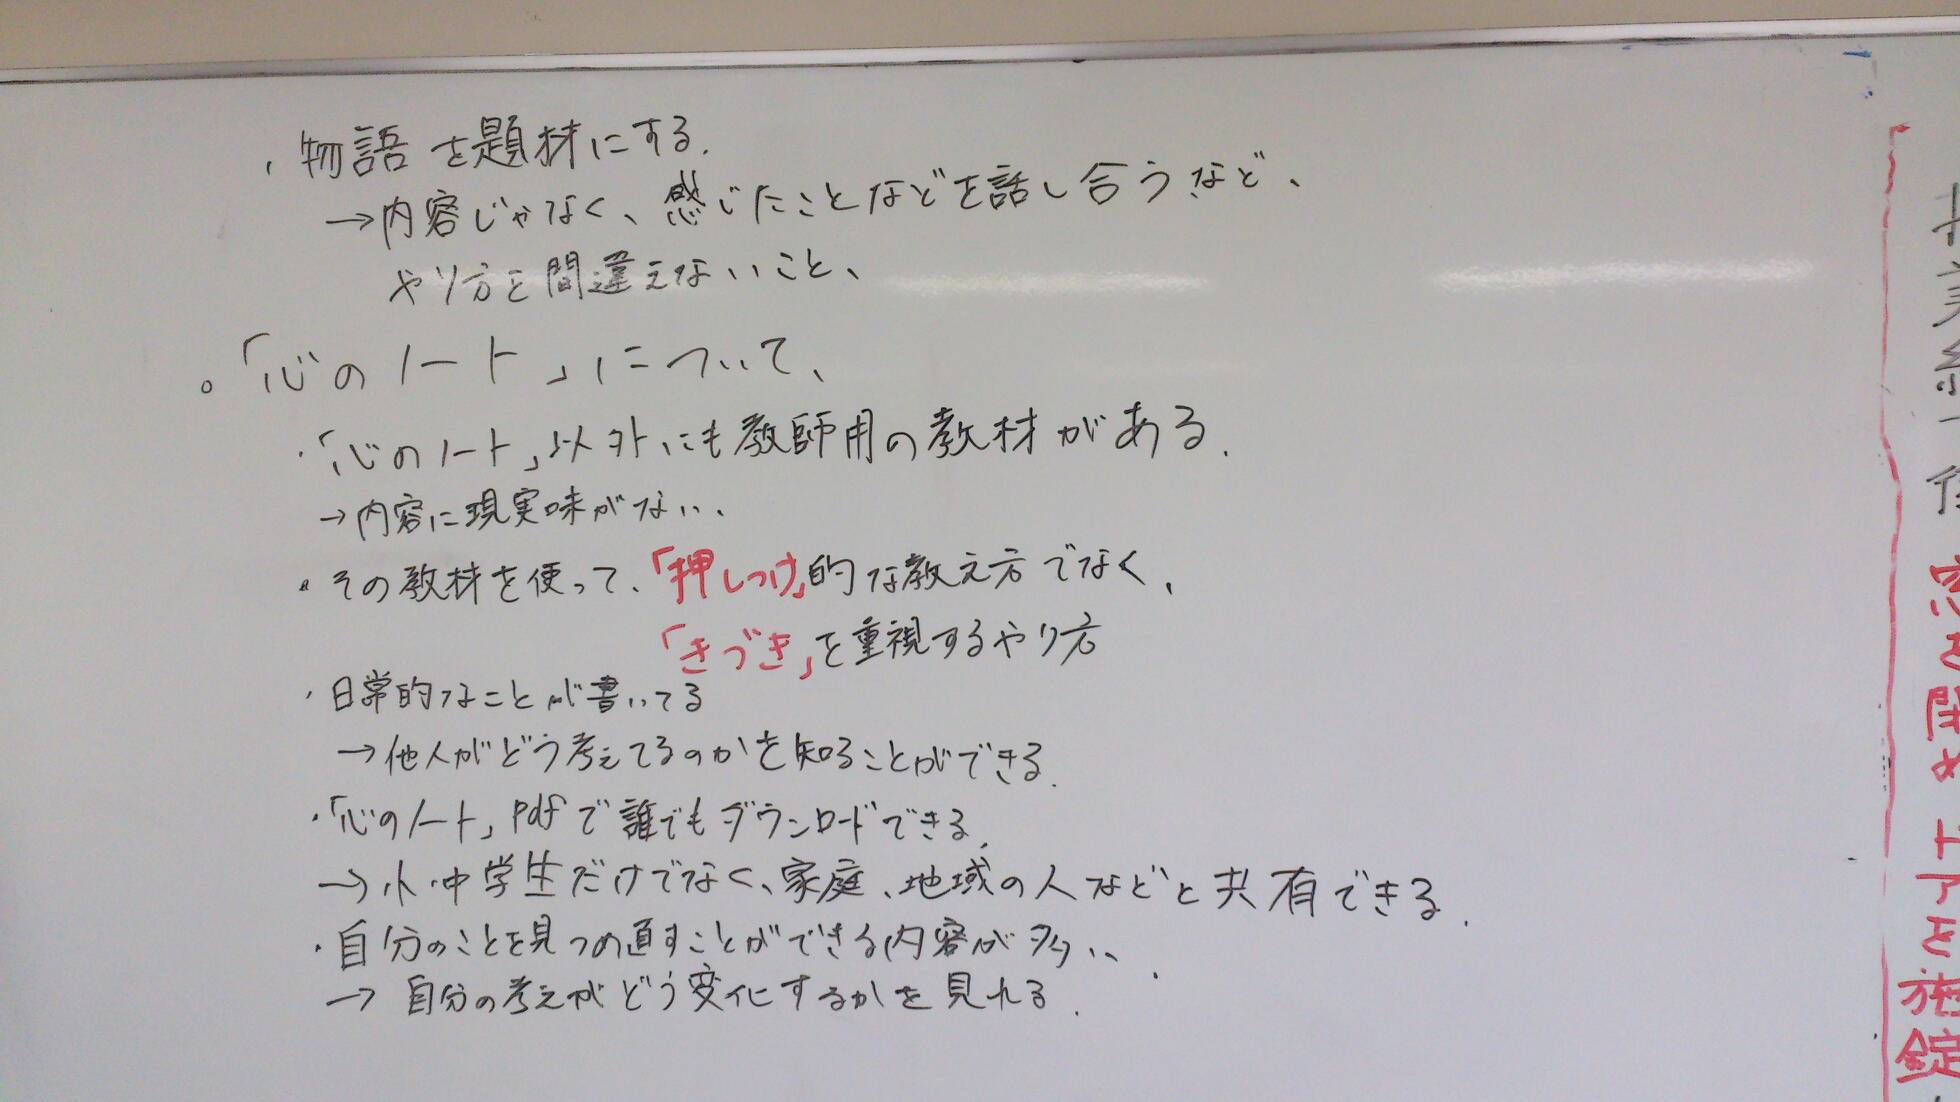 ・物語を題材にする.
→内容じゃなく、感じたことなどを話し合うなど、
やり方を間違えないこと、
。「心のノート」について、
・「心のノート」以外にも教師用の教材がある.
→内容に現実味がない、
・その教材を使って、「押しつけ」的な教え方でなく、
「きづき」を重視するやり方
・日常的なことが書いてる
→他人がどう考えてるのかを知ることができる.
・「心のノート」pdfで誰でもダウンロードできる.
→小・中学生だけでなく、家庭、地域の人などと共有できる.
・自分のことを見つめ直すことができる内容が多い.
→自分の考えがどう変化するかを見れる.
窓を閉めドアを施錠